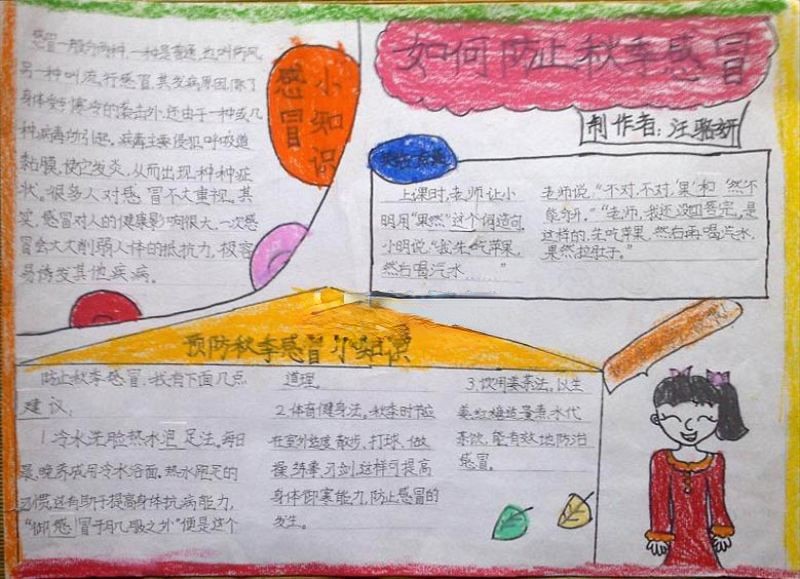 如何防止秋季感冒
制作者：汪骆妍
感冒
小知识
感冒一般分两种，一种是普通，也叫伤风，
另一种叫流行感冒，其发病原因，除了
身体受到寒冷的袭击外，还由于一种或几
种病毒的引起。病毒主要侵犯呼吸道
黏膜，使它发炎，从而出现种种症
状。很多人对感冒不太重视。其
实，感冒对人的健康影响很大，一次感
冒会大大削弱人体的抵抗力，极容
易诱发其他疾病。
上课时，老师让小
明用“果然”这个词造句，
小明说，“我先吃苹果，
然后喝汽水……”
老师说，“不对，不对，‘果’和‘然’不
能分开。”“老师，我还没回答完，是
这样的，先吃苹果，然后再喝汽水，
果然拉肚子。”
预防秋季感冒小知识
防止秋季感冒，我有下面几点
建议：
1.冷水洗脸热水泡足法。每日
晨、晚养成用冷水浴面，热水泡足的
习惯，这有助于提高身体抗病能力，
“御感冒于肌毂之外”便是这个
道理。
2.体育健身法。秋季时节
在室外适度散步、打球、做
操、练拳、习剑，这样可提高
身体御寒能力，防止感冒的
发生。
3.饮用姜茶法。以生
水代
茶饮，能有效地防治
感冒。